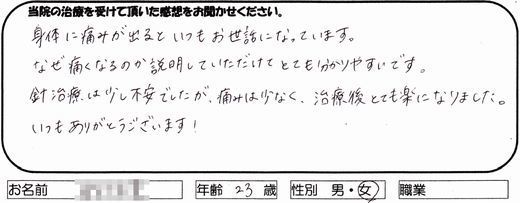 当院の治療を受けて頂いた感想をお聞かせください。
身体に痛みが出るといつもお世話になっています。
なぜ痛くなるのか説明していただけてとても分かりやすいです。
針治療は少し不安でしたが、痛みは少なく、治療後とても楽になりました。
いつもありがとうございます!
お名前 年齢 23 歳 性別 男・女 職業